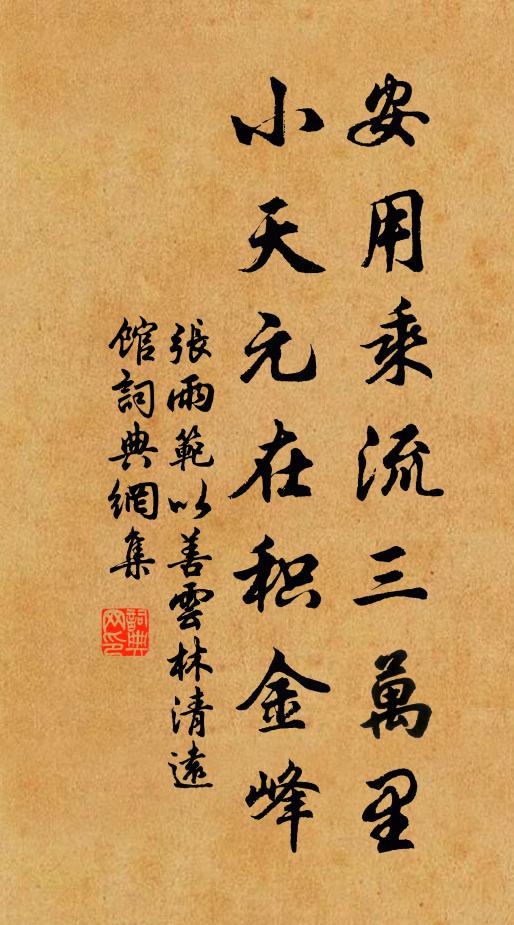 安用乘流三萬里
小天元在积金峰
張雨範以善雲林清遠
馆詞典網集
詞典網印